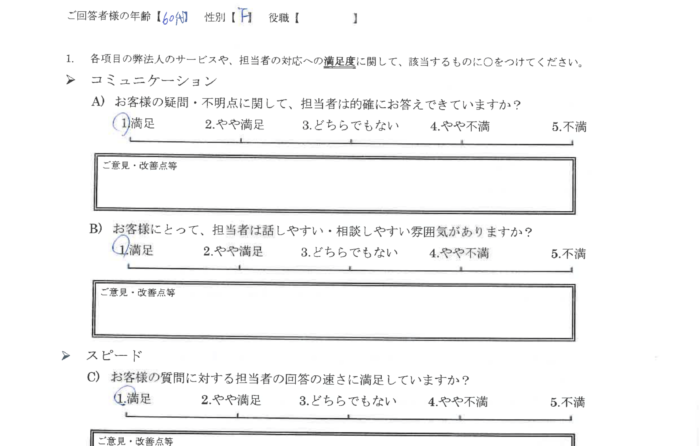 ご回答者様の年齢【60代】 性別【下】 役職【　　　】
1. 各項目の弊法人のサービスや、担当者の対応への満足度に関して、該当するものに○をつけてください。
➢ コミュニケーション
A) お客様の疑問・不明点に関して、担当者は的確にお答えできていますか？
1.満足 2.やや満足 3.どちらでもない 4.やや不満 5.不満
ご意見・改善点等
B) お客様にとって、担当者は話しやすい・相談しやすい雰囲気がありますか？
1.満足 2.やや満足 3.どちらでもない 4.やや不満 5.不満
ご意見・改善点等
➢ スピード
C) お客様の質問に対する担当者の回答の速さに満足していますか？
1.満足 2.やや満足 3.どちらでもない 4.やや不満 5.不満
ご意見・改善点等